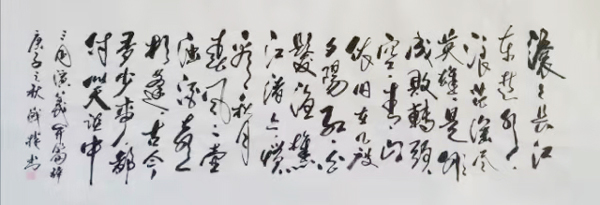 滚々長江
东逝水
浪花淘尽
英雄是非
成敗轉頭
空青山
依旧在几度
夕陽红白
髮漁樵
江渚上惯
看秋月
春风一壶
浊酒喜
相逢古今
多少事都
付笑谈中
三国演义开篇词
庚子之秋 书